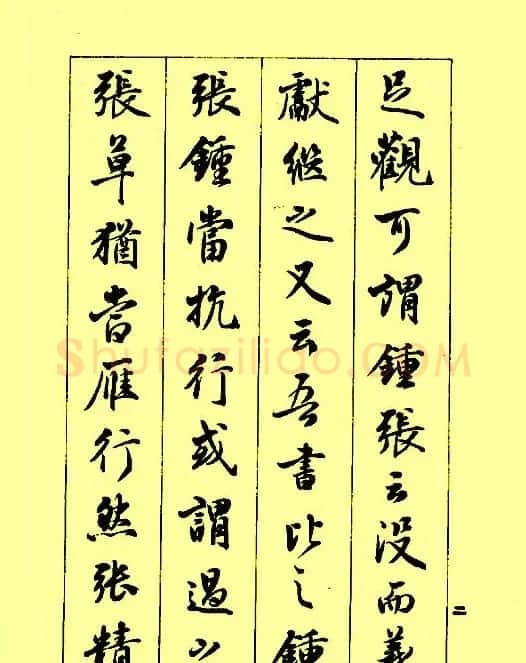 足觀可謂鍾張云没而羲
獻继之又云吾書比之鍾
張鍾當抗行或謂過之
張草猶當雁行然张精
二
Shufaziliao.COM